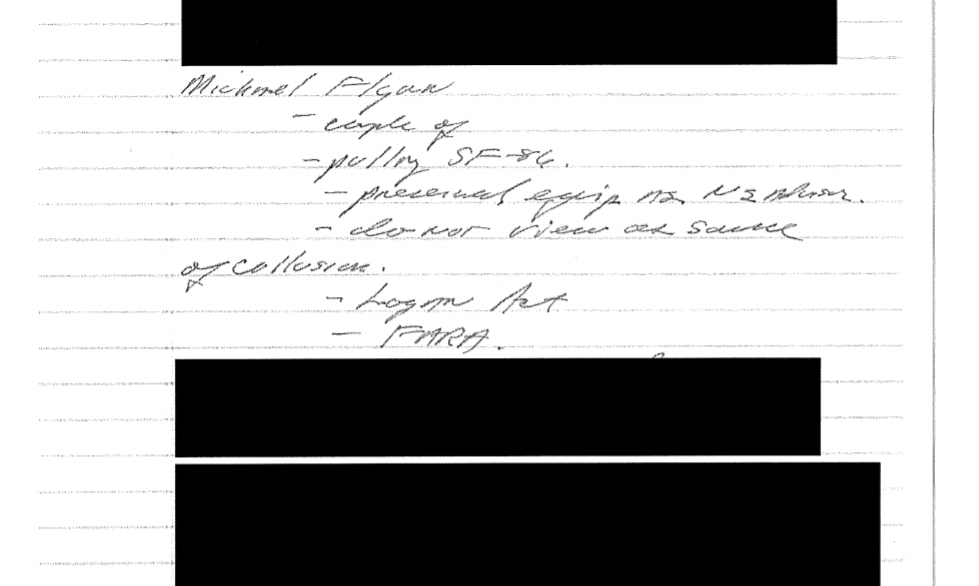 Michael Flynn
- couple of
- pulling SF-86.
- preserved equip as
- do not view as source
of collusion.
- Logan Act
- FARA.